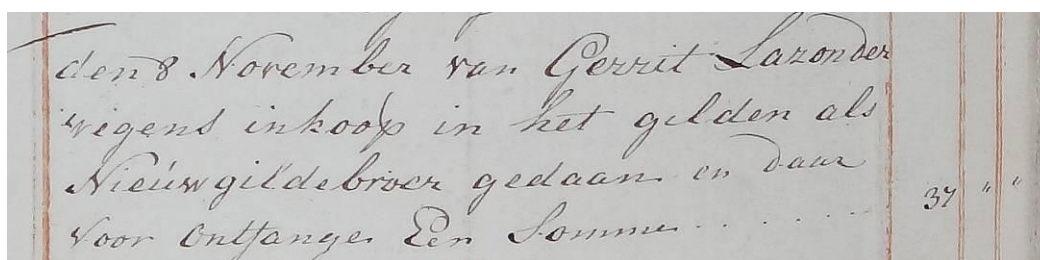 den 8 November van Gerrit Lazonder
wegens inkoop in het gelden als
Nieuw gildebroer gedaan en daar
voor ontfange Een Somme . . . . . . . 37 " "